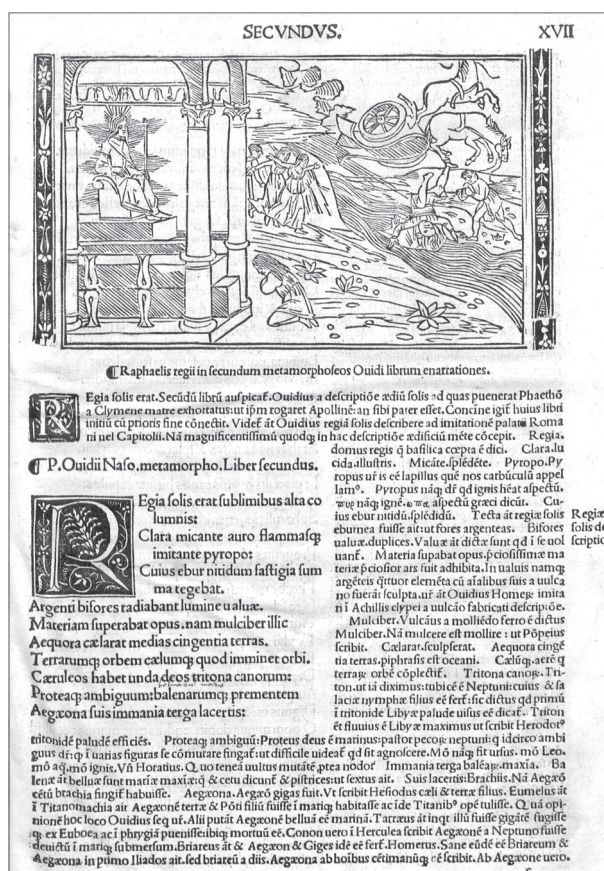 SECVNDVS. XVII
¶Raphaelis regii in secundum metamorphoseos Ouidi librum enarrationes.
REgia solis erat.Secūdū librū auspicat̃.Ouidius a descriptiōe ædiū solis ad quas puenerat Phaethō
a Clymene matre exhortatus:ut ipm rogaret Apollinē:an sibi pater esset.Concine igit̃ huius libri
initiū cū prioris fine cōnectit. Videt̃ āt Ouidius regiā solis describere ad imitationē palatii Roma
ni uel Capitolii.Nā magnificentissimū quodq; in hac descriptiōe ædificiū mēte cōcepit. Regia.
domus regis q̄ basilica cœpta ē dici. Clara.lu
cida.illustris. Micāte.splēdēte. Pyropo.Py
ropus ur̃ is eē lapillus quē nos carbūculū appel
lam⁹. Pyropus nāq; dr̃ qd ignis hēat aspectū.
nāq; ignē. aspectū græci dicūt. Cu-
ius ebur nitidū.splēdidū. Tecta āt regiæ solis
eburnea fuisse ait:ut fores argenteas. Bifores
ualuæ.duplices. Valuæ āt dictæ sunt qd ī se uol
uant̃. Materia supabat opus.p̄ciosissimæ ma
teriæ p̄ciosior ars fuit adhibita. In ualuis namq;
argēteis q̄ttuor elemēta cū aīalibus suis a uulca
no fuerāt sculpta.ur̃ āt Ouidius Homerū imita
ri ī Achillis clypei a uulcāo fabricati descriptiōe.
Mulciber.Vulcāus a molliēdo ferro ē dictus
Mulciber.Nā mulcere est mollire : ut Pōpeius
scribit. Cælarat.sculpserat. Aequora cingē
tia terras.piphrasis est oceani. Cælūq;.aerē q
terrarū orbē cōplectit̃. Tritona canorū.Tri-
ton.ut iā diximus:tubicē ē Neptuni:cuius & sa
laciæ nymphæ filius eē fert̃:sic dictus qd primū
ī tritonide Libyæ palude uisus eē dicat̃. Triton
ē fluuius ē Libyæ maximus ut scribit Herodot⁹
Regiæ
solis de
scriptio
¶P.Ouidii Naso.metamorpho.Liber secundus.
REgia solis erat sublimibus alta co
lumnis:
Clara micante auro flammasq;
imitante pyropo:
Cuius ebur nitidum fastigia sum
ma tegebat.
Argenti bifores radiabant lumine ualuæ.
Materiam superabat opus.nam mulciber illic
Aequora cælarat medias cingentia terras.
Terrarumq; orbem cælumq; quod imminet orbi.
Cæruleos habet unda deos tritona canorum:
Proteaq; ambiguum:balenarumq; prementem
Aegæona suis immania terga lacertis:
tritonidē paludē efficiēs. Proteaq; ambiguū:Proteus deus ē marinus:pastor pecorū neptuni:q idcirco ambi
guus dr̃:q ī uarias figuras se cōmutare fingat̃:ut difficile uideat̃ qd sit agnoscere.Mō nāq; fit ursus. mō Leo.
mō aq̄.mō ignis.Vñ Horatius. Quo teneā uultus mutātē ptea nodo? Immania terga balēarū.maxīa. Ba
lenæ āt belluæ sunt mariæ maxīæ:q̄ & cetu dicunt̃ & pistrices:ut sextus ait. Suis lacertis:Brachiis.Nā Aegæō
cētū brachia fingit̃ habuisse. Aegæona.Aegæō gigas fuit.Vt scribit Hesiodus cæli & terræ filius. Eumelus āt
ī Titanomachia ait Aegæonē terræ & Pōti filiū fuisse ī mariq; habitasse ac īde Titanib⁹ opē tulisse. Quā opi-
nionē hoc loco Ouidius seq̄ ur̃.Alii putāt Aegæonē belluā eē marinā.Tarræus āt inqt illū fuisse gigātē fugisse
q; ex Euboea ac ī phrygiā puenisse:ibiq; mortuū eē.Conon uero ī Herculea scribit Aegæonē a Neptuno fuisse
deuictū ī mariq; submersum.Briareus āt & Aegæon & Giges idē eē fert̃.Homerus.Sane eūdē eē Briareum &
Aegæona in primo Iliados ait.sed briareū a diis.Aegæona ab hoībus cētimanūq; eē scribit. Ab Aegæone uero.